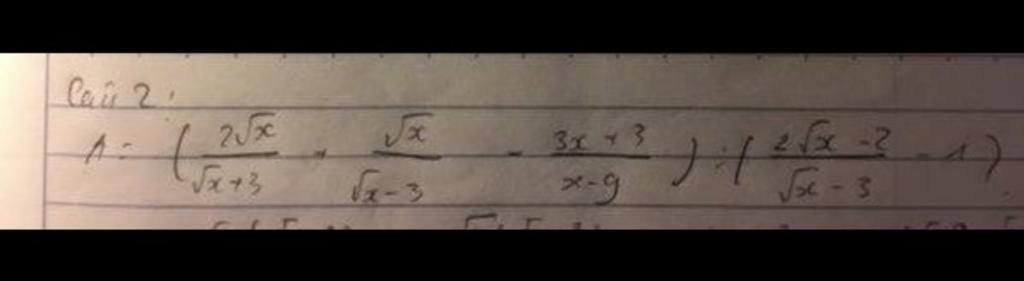 Bài 2:
A = ( 2√x / √x+3 + √x / √x-3 - 3x+3 / x-9 ) : ( 2√x-2 / √x-3 - 1 )